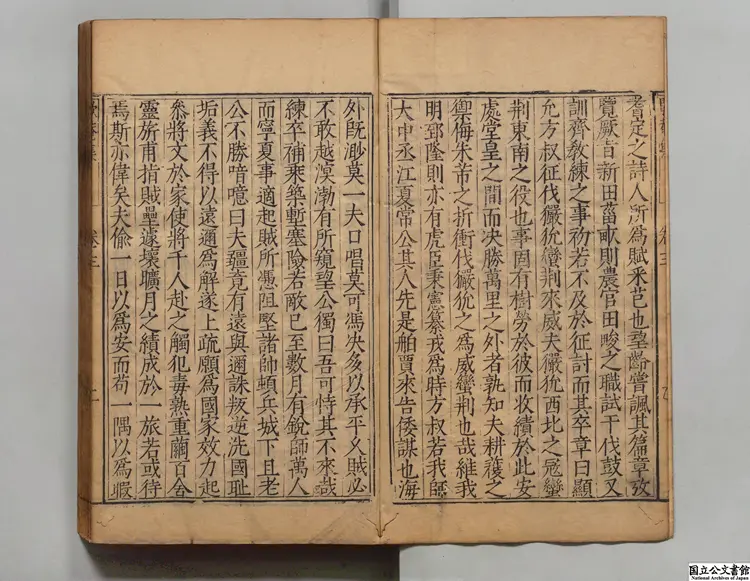 耆定之詩人所為賦采芑也壑齡嘗諷其篇章攷
覽厥旨新田菑畝則農官田畯之職試干伐鼓又
訓齊教練之事初若不及於征討而其卒章曰顯
允方叔征伐玁狁蠻荊來威夫玁狁西北之寇蠻
荊東南之役也事固有樹勞於彼而收績於此安
處堂皇之間而決勝萬里之外者孰知夫耕穫之
禦侮朱芾之折衝伐玁狁之為威蠻荊也哉維我
明郅隆則亦有虎臣秉憲纂戎為時方叔若我師
大中丞江夏常公其人先是舶賈來告倭謀也海
外既渺莫一夫口唱莫可馮決多以承平久賊必
不敢越溟渤有所窺望公獨曰吾可恃其不來哉
練卒補乘築塹塞險若敵已至數月有銳師萬人
而寧夏事適起賊所憑阻堅諸帥頓兵城下且老
公不勝喑噫曰夫疆竟有遠與邇誅叛逆洗國耻
垢義不得以遠邇為解遂上疏願為國家效力起
叅將文於家使將千人赴之觸犯毒熱重繭百舍
靈旂甫指賊壘遽壞曠月之績成於一旅若或待
焉斯亦偉矣夫偷一日以為安而苟一隅以為暇
卷三
卷三
国立公文書館
National Archives of Japan